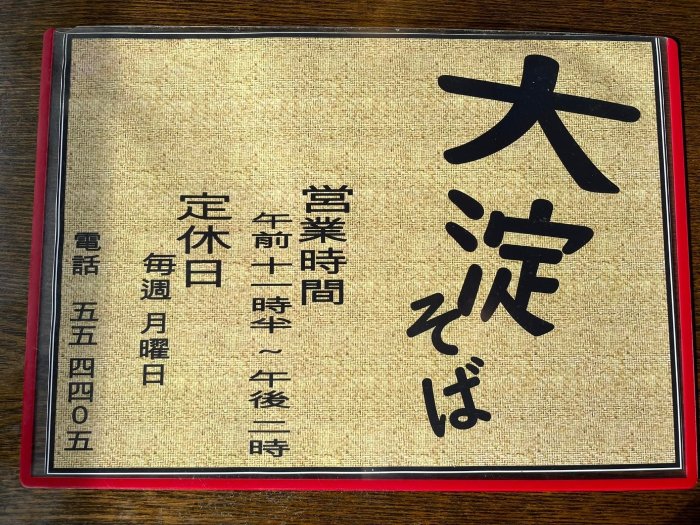 大淀そば
営業時間
午前十一時半～午後二時
定休日
毎週月曜日
電話 五五四四〇五